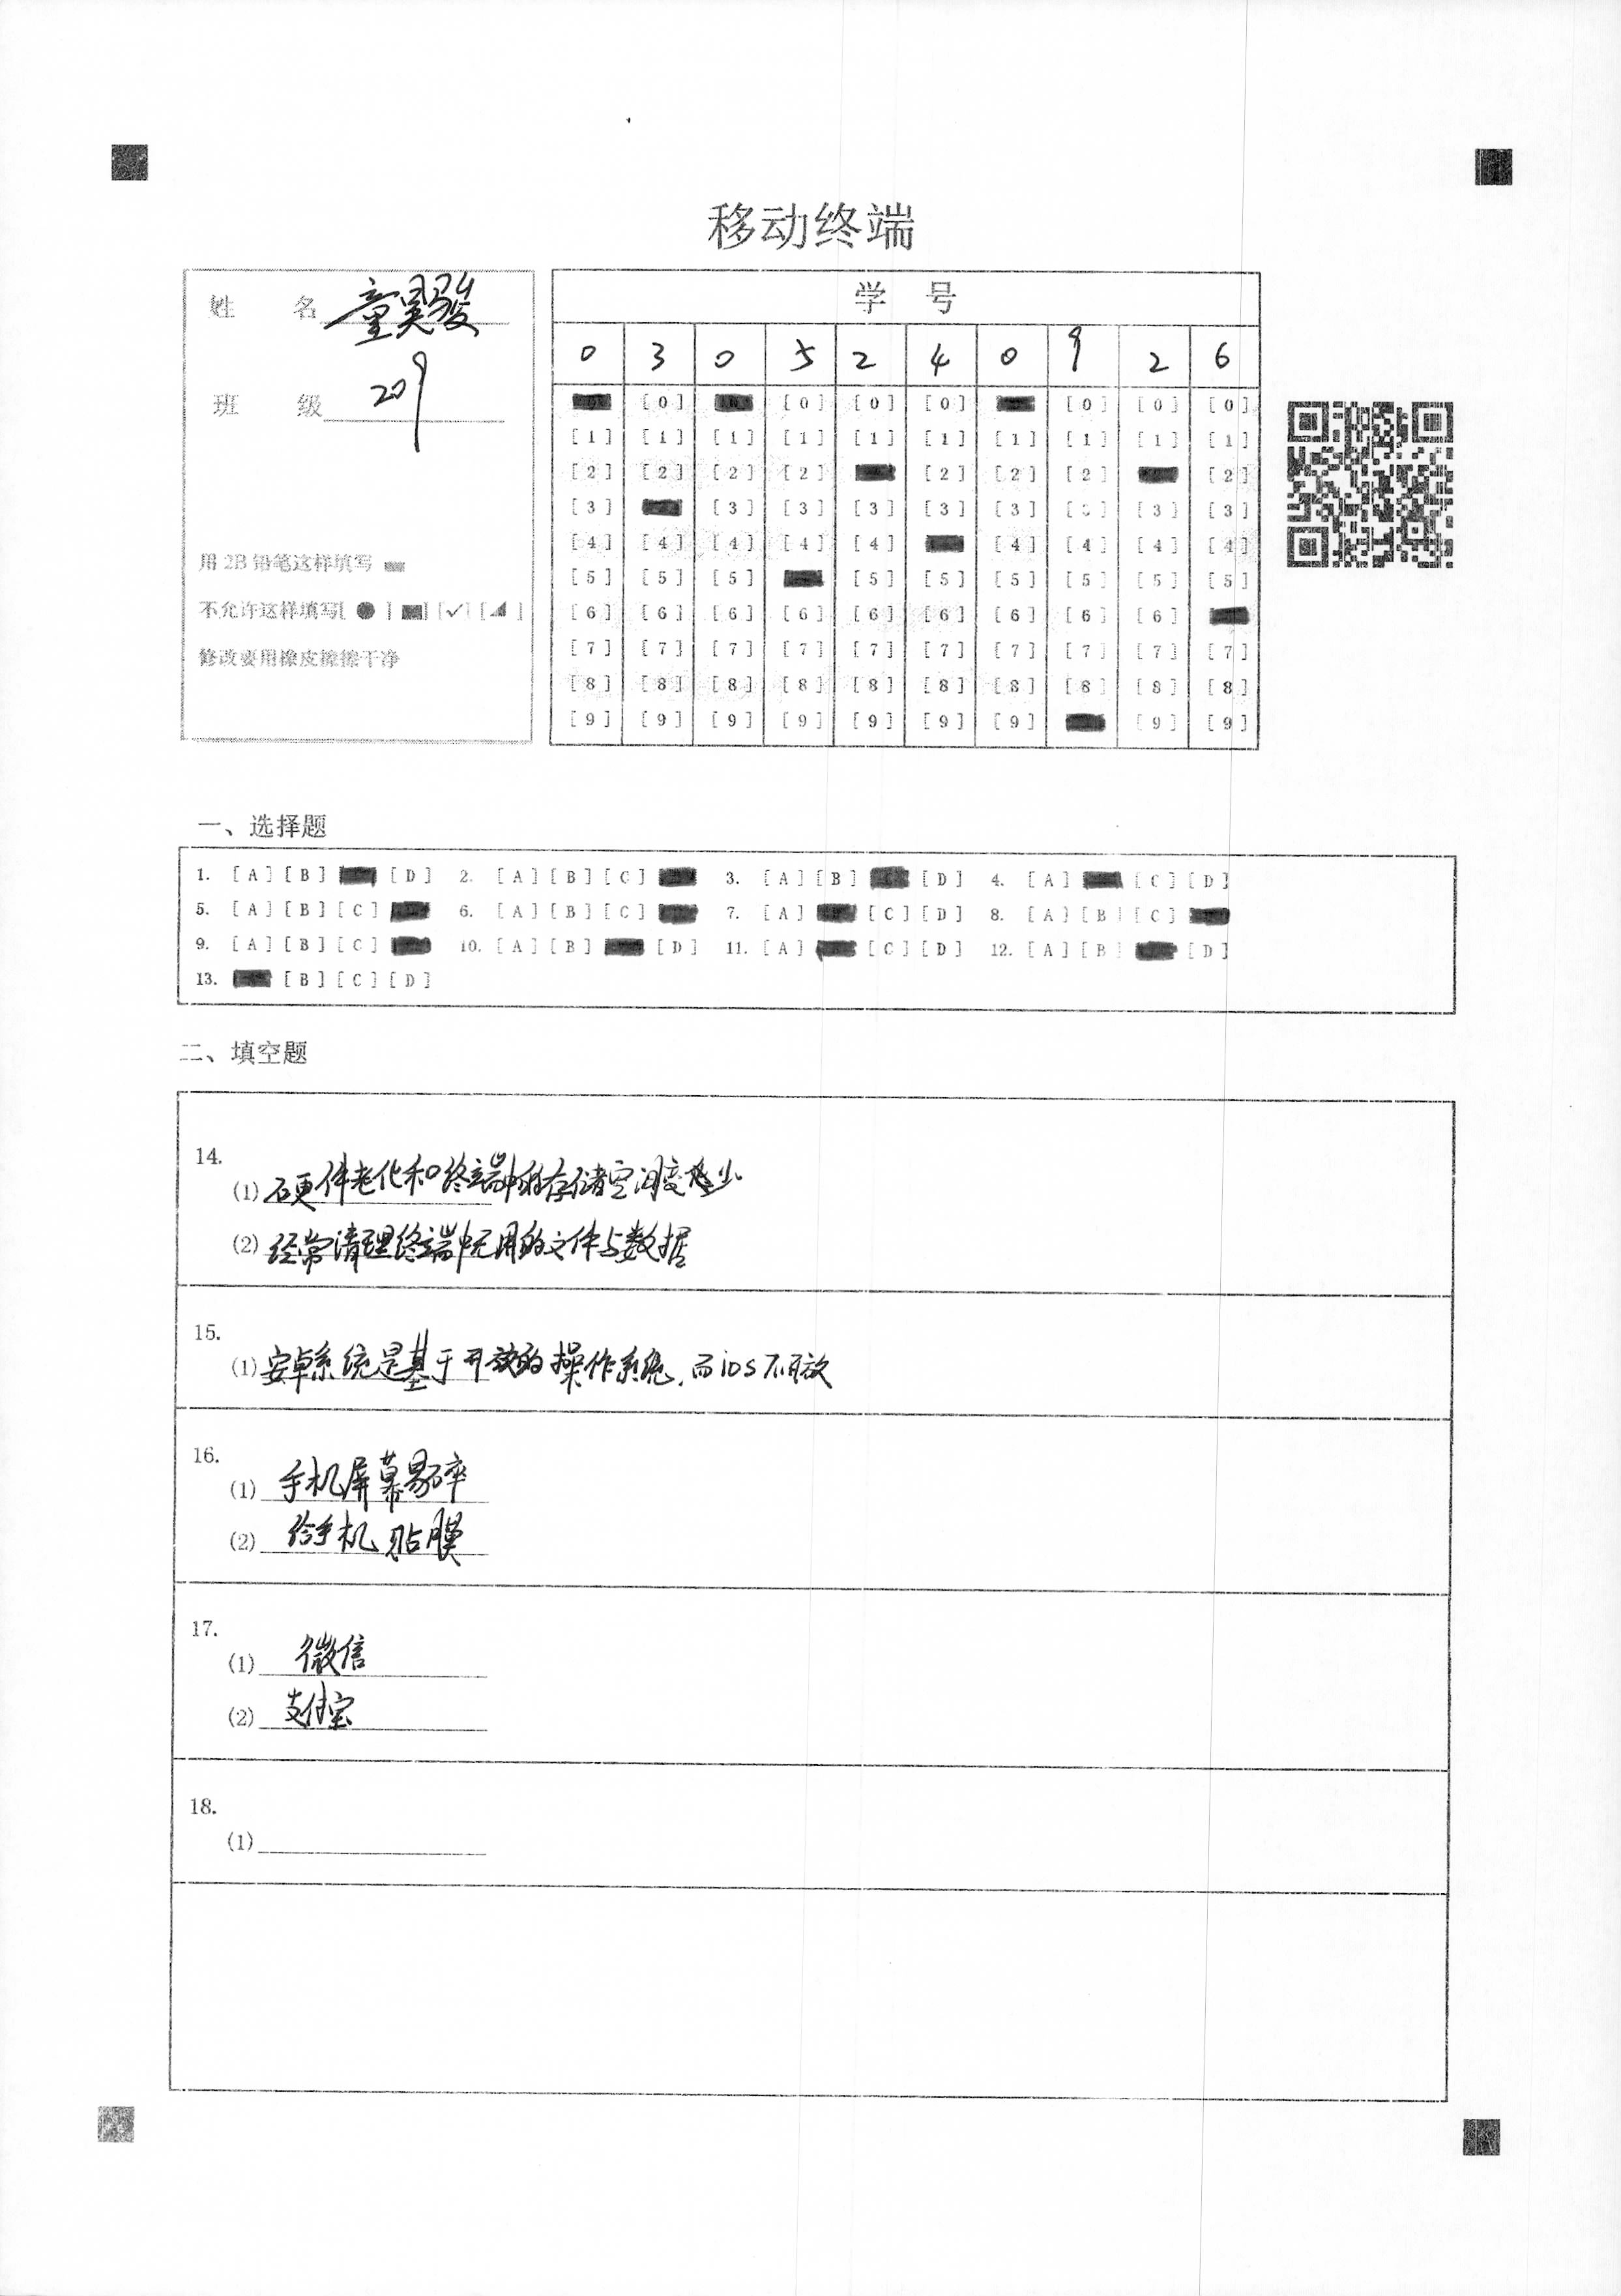 移动终端
姓 名 童昊骏
班 级 209
用 2B 铅笔这样填写
不允许这样填写[ ● ] [■] [✓] [◢ ]
修改要用橡皮擦擦干净
学 号
0 3 0 5 2 4 0 9 2 6
[0] [0] [0] [0] [0] [0]
[1] [1] [1] [1] [1] [1] [1] [1] [1] [1]
[2] [2] [2] [2] [2] [2] [2] [2]
[3] [3] [3] [3] [3] [3] [3] [3] [3]
[4] [4] [4] [4] [4] [4] [4] [4] [4]
[5] [5] [5] [5] [5] [5] [5] [5] [5]
[6] [6] [6] [6] [6] [6] [6] [6] [6]
[7] [7] [7] [7] [7] [7] [7] [7] [7] [7]
[8] [8] [8] [8] [8] [8] [8] [8] [8] [8]
[9] [9] [9] [9] [9] [9] [9] [9] [9]
一、选择题
1. [A] [B] [D] 2. [A] [B] [C] 3. [A] [B] [D] 4. [A] [C] [D]
5. [A] [B] [C] 6. [A] [B] [C] 7. [A] [C] [D] 8. [A] [B] [C]
9. [A] [B] [C] 10. [A] [B] [D] 11. [A] [C] [D] 12. [A] [B] [D]
13. [B] [C] [D]
二、填空题
14.
(1) 硬件老化和终端中的存储空间变少
(2) 经常清理终端中无用的文件与数据
15.
(1) 安卓系统是基于开放的操作系统,而ios不开放
16.
(1) 手机屏幕易碎
(2) 给手机贴膜
17.
(1) 微信
(2) 支付宝
18.
(1)